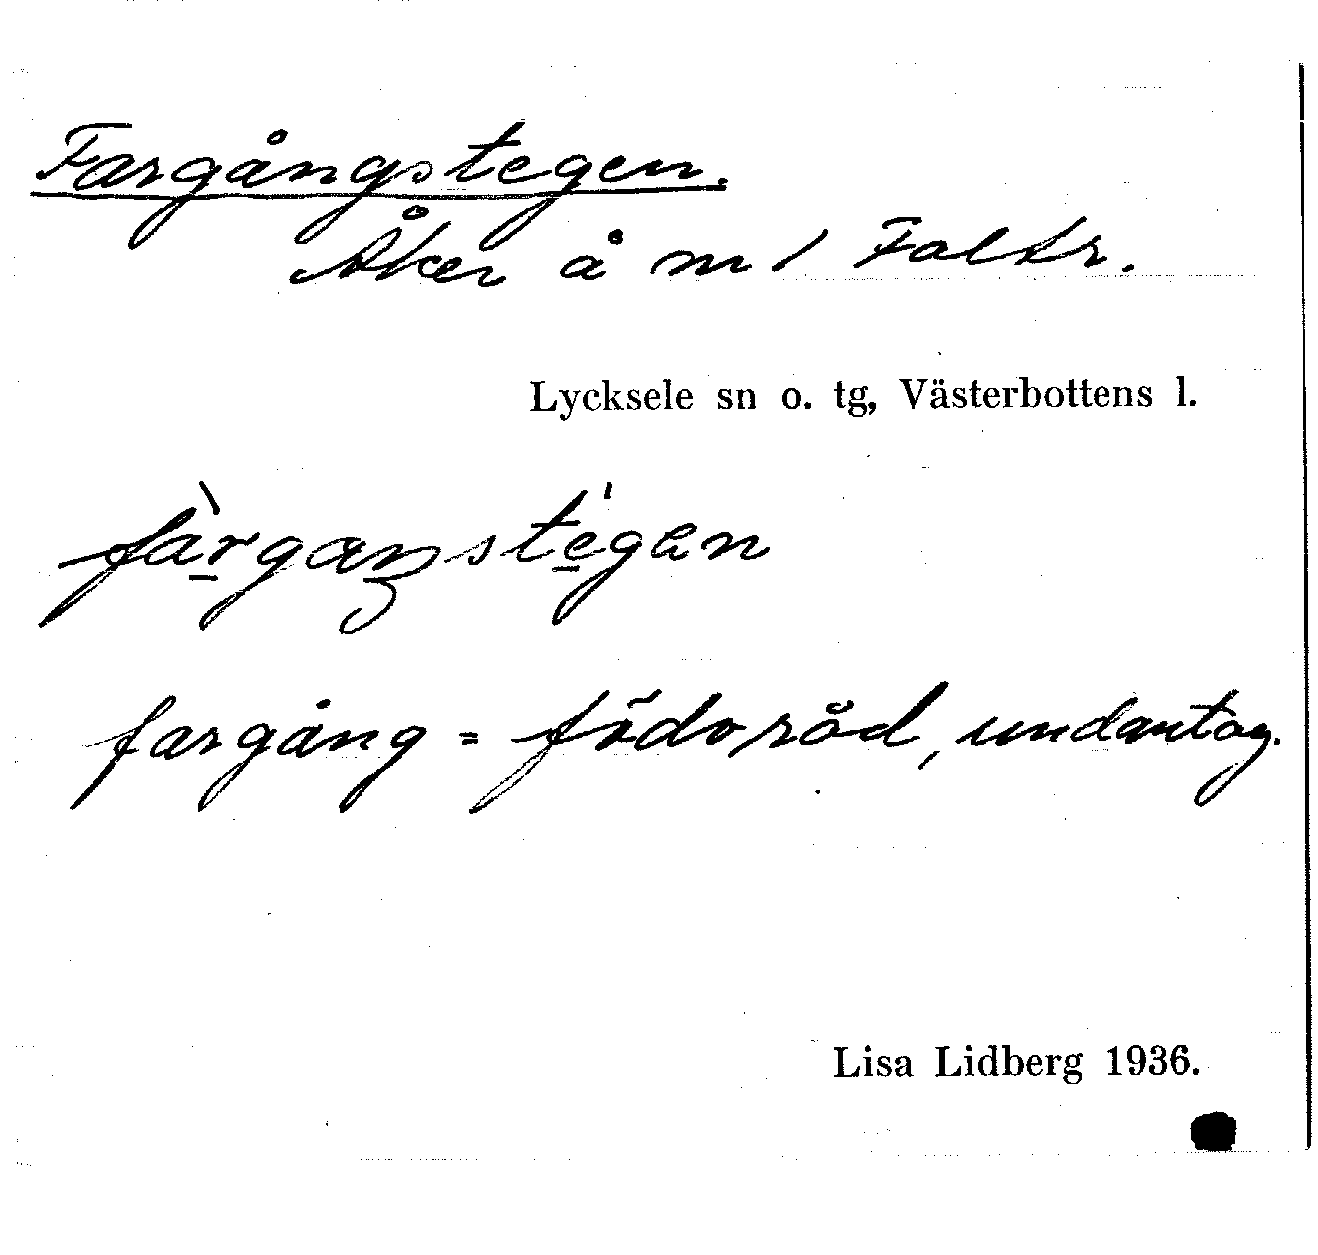 Fargångstegen.
Åker å nr 1 Faltr.
Lycksele sn o. tg, Västerbottens l.
fàrgaŋsté̱gen
fargång = födoråd, undantag.
Lisa Lidberg 1936.